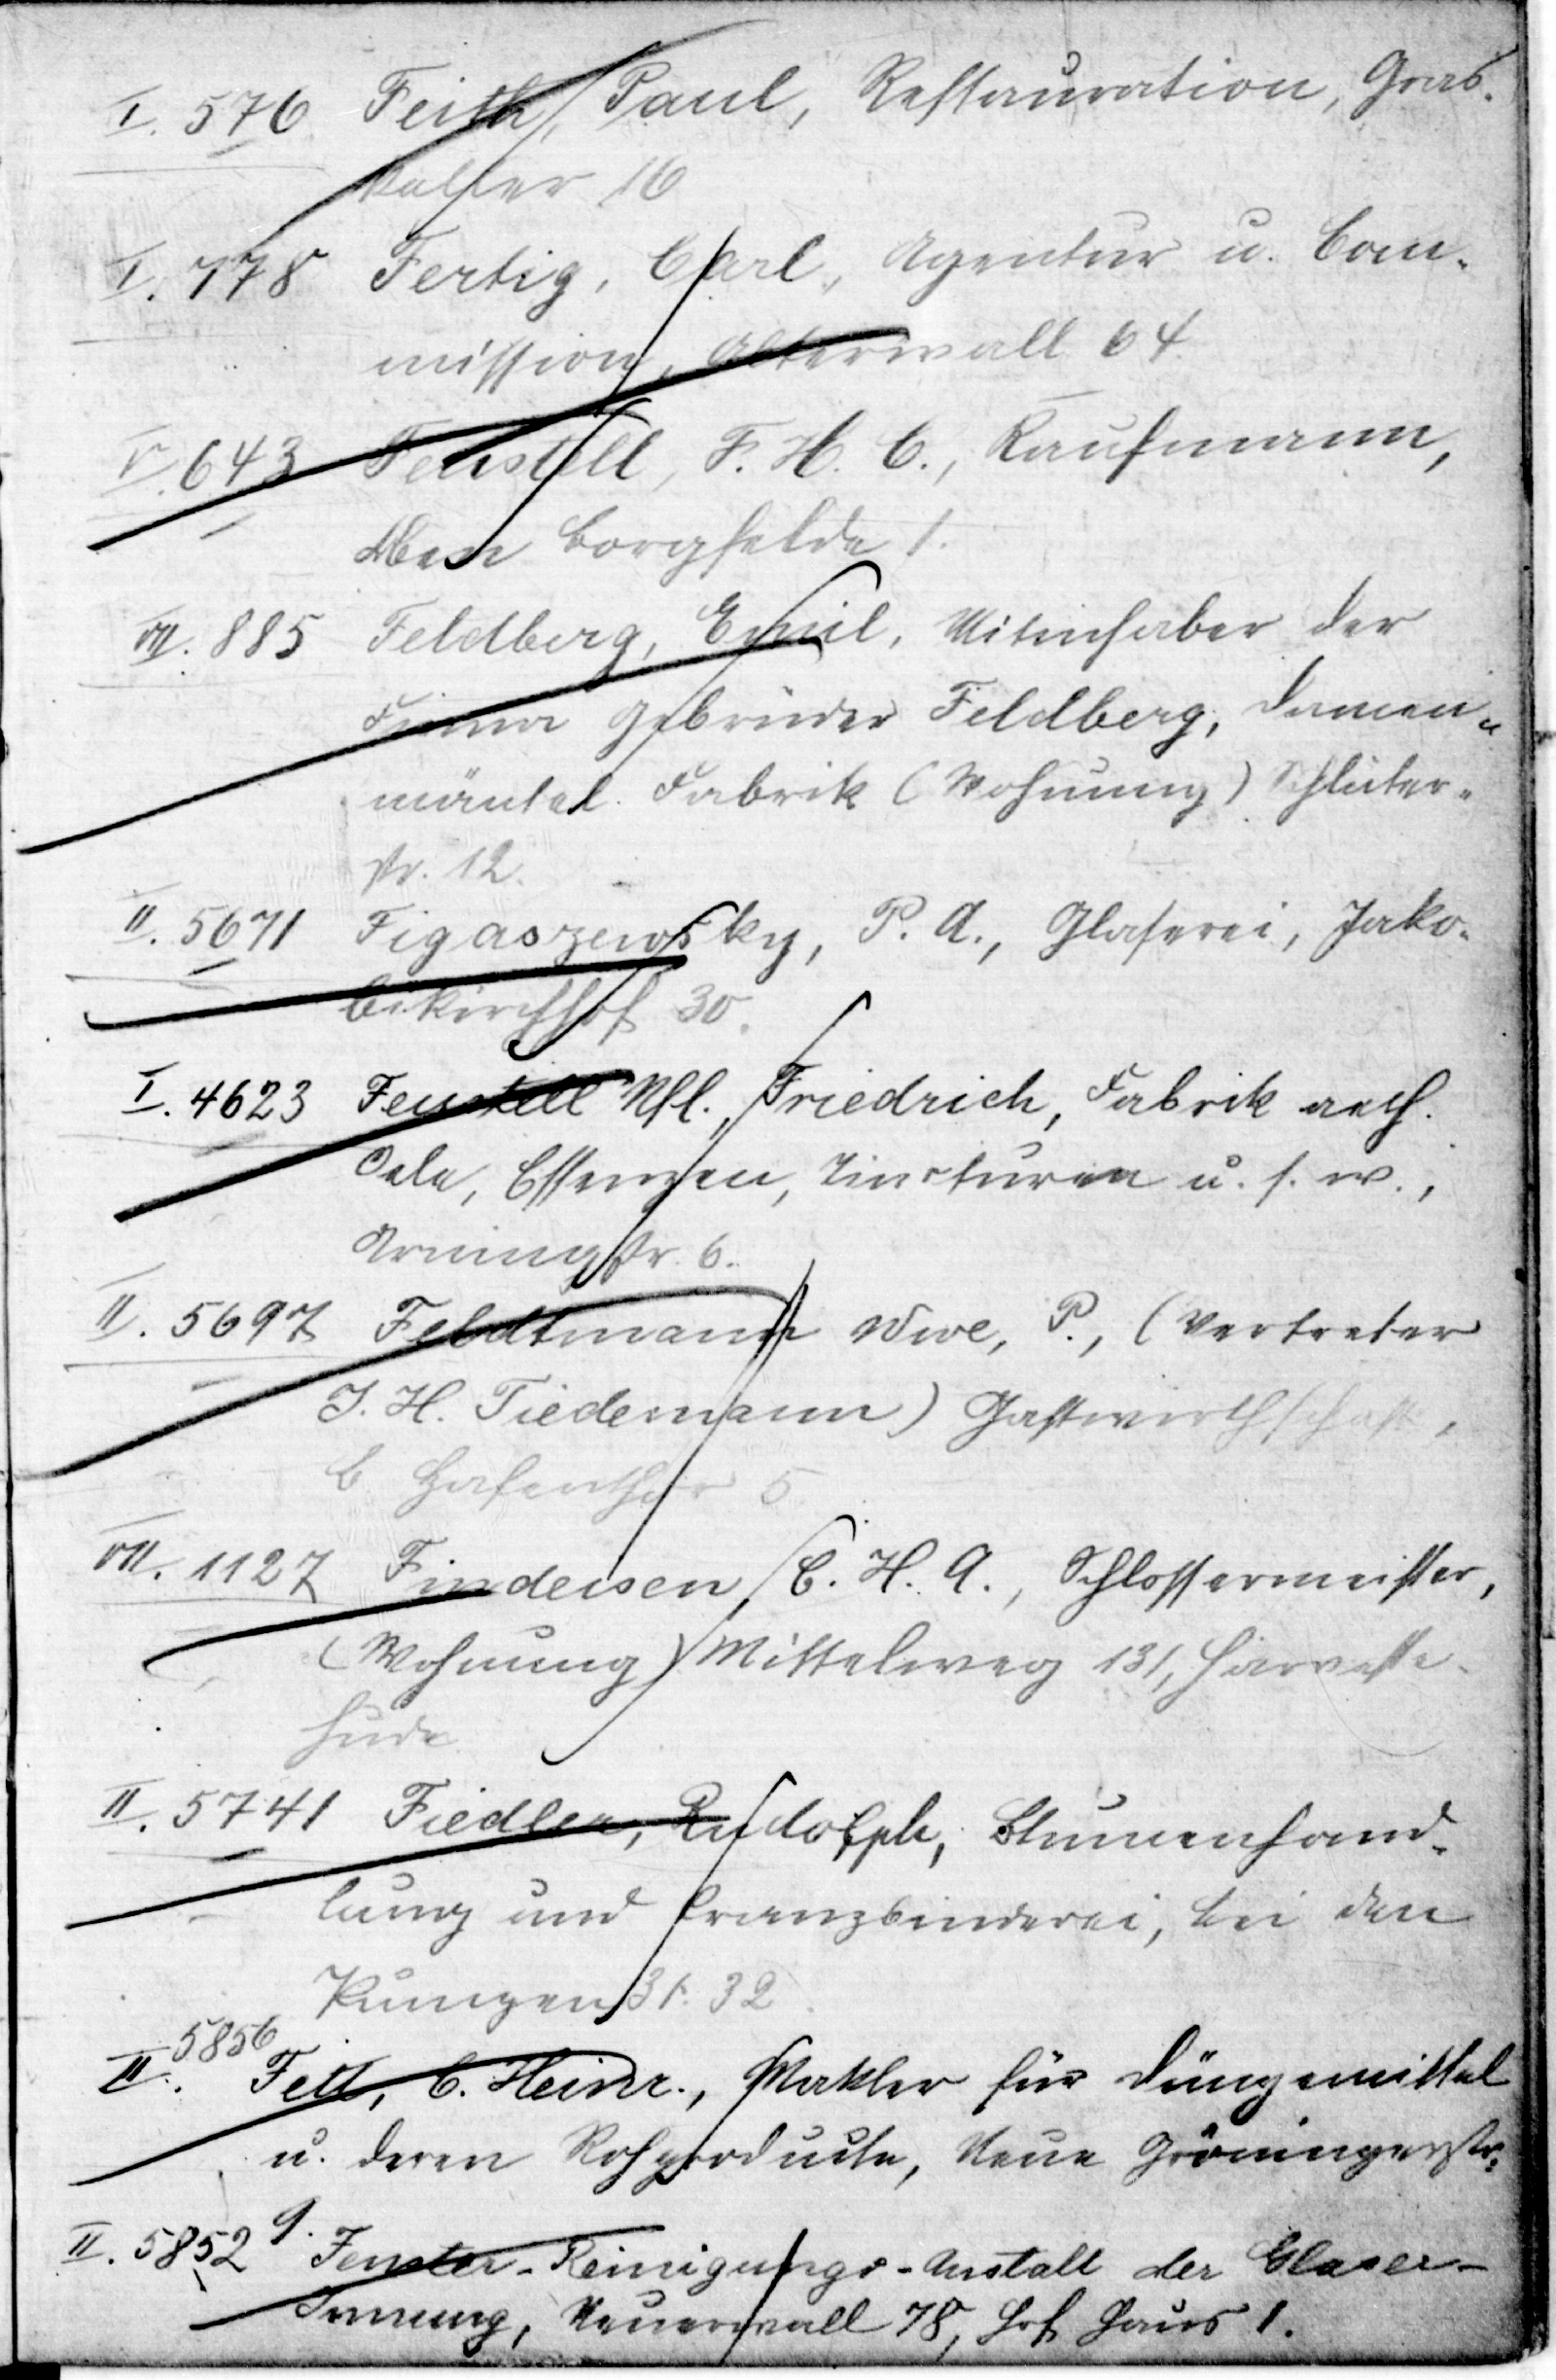 I. 576 Feith, Paul, Restauration, Gras-
keller 16
I. 778 Fertig, Carl, Agentur u. Com-
mission, Alterwall 64
V. 643 Feustell, F. H. C., Kaufmann,
Oben Borgfelde 1.
VII. 885 Feldberg, Emil, Mitinhaber der
Firma Gebrüder Feldberg, Damen-
mäntel-Fabrik (Wohnung) Schlüter-
str. 12.
II. 5671 Figaszewsky, P. A., Glaserei, Jako-
bikirchhof 30.
I. 4623 Feustell Nfl., Friedrich, Fabrik aeth.
Oele, Essenzen, Tincturen u. s. w.,
Arningstr. 6.
II. 5697 Feldtmann Wwe, P., (Vertreter
J. H. Tiedemann) Gastwirthschaft,
b. Hafenthor 5
VII. 1127 Findeisen, C. H. A., Schlossermeister,
(Wohnung) Mittelweg 131, Harveste-
hude
II. 5741 Fiedler, Rudolph, Blumenhand-
lung und Kranzbinderei, bei den
Pumpen 31. 32.
II. 5856 Fett, C. Heinr., Makler für Düngemittel
u. deren Rohproducte, Neue Gröningerstr.
9.
II. 5852 Fenster-Reinigungs-Anstalt der Glaser-
Innung, Neuerwall 78, Hof Haus 1.